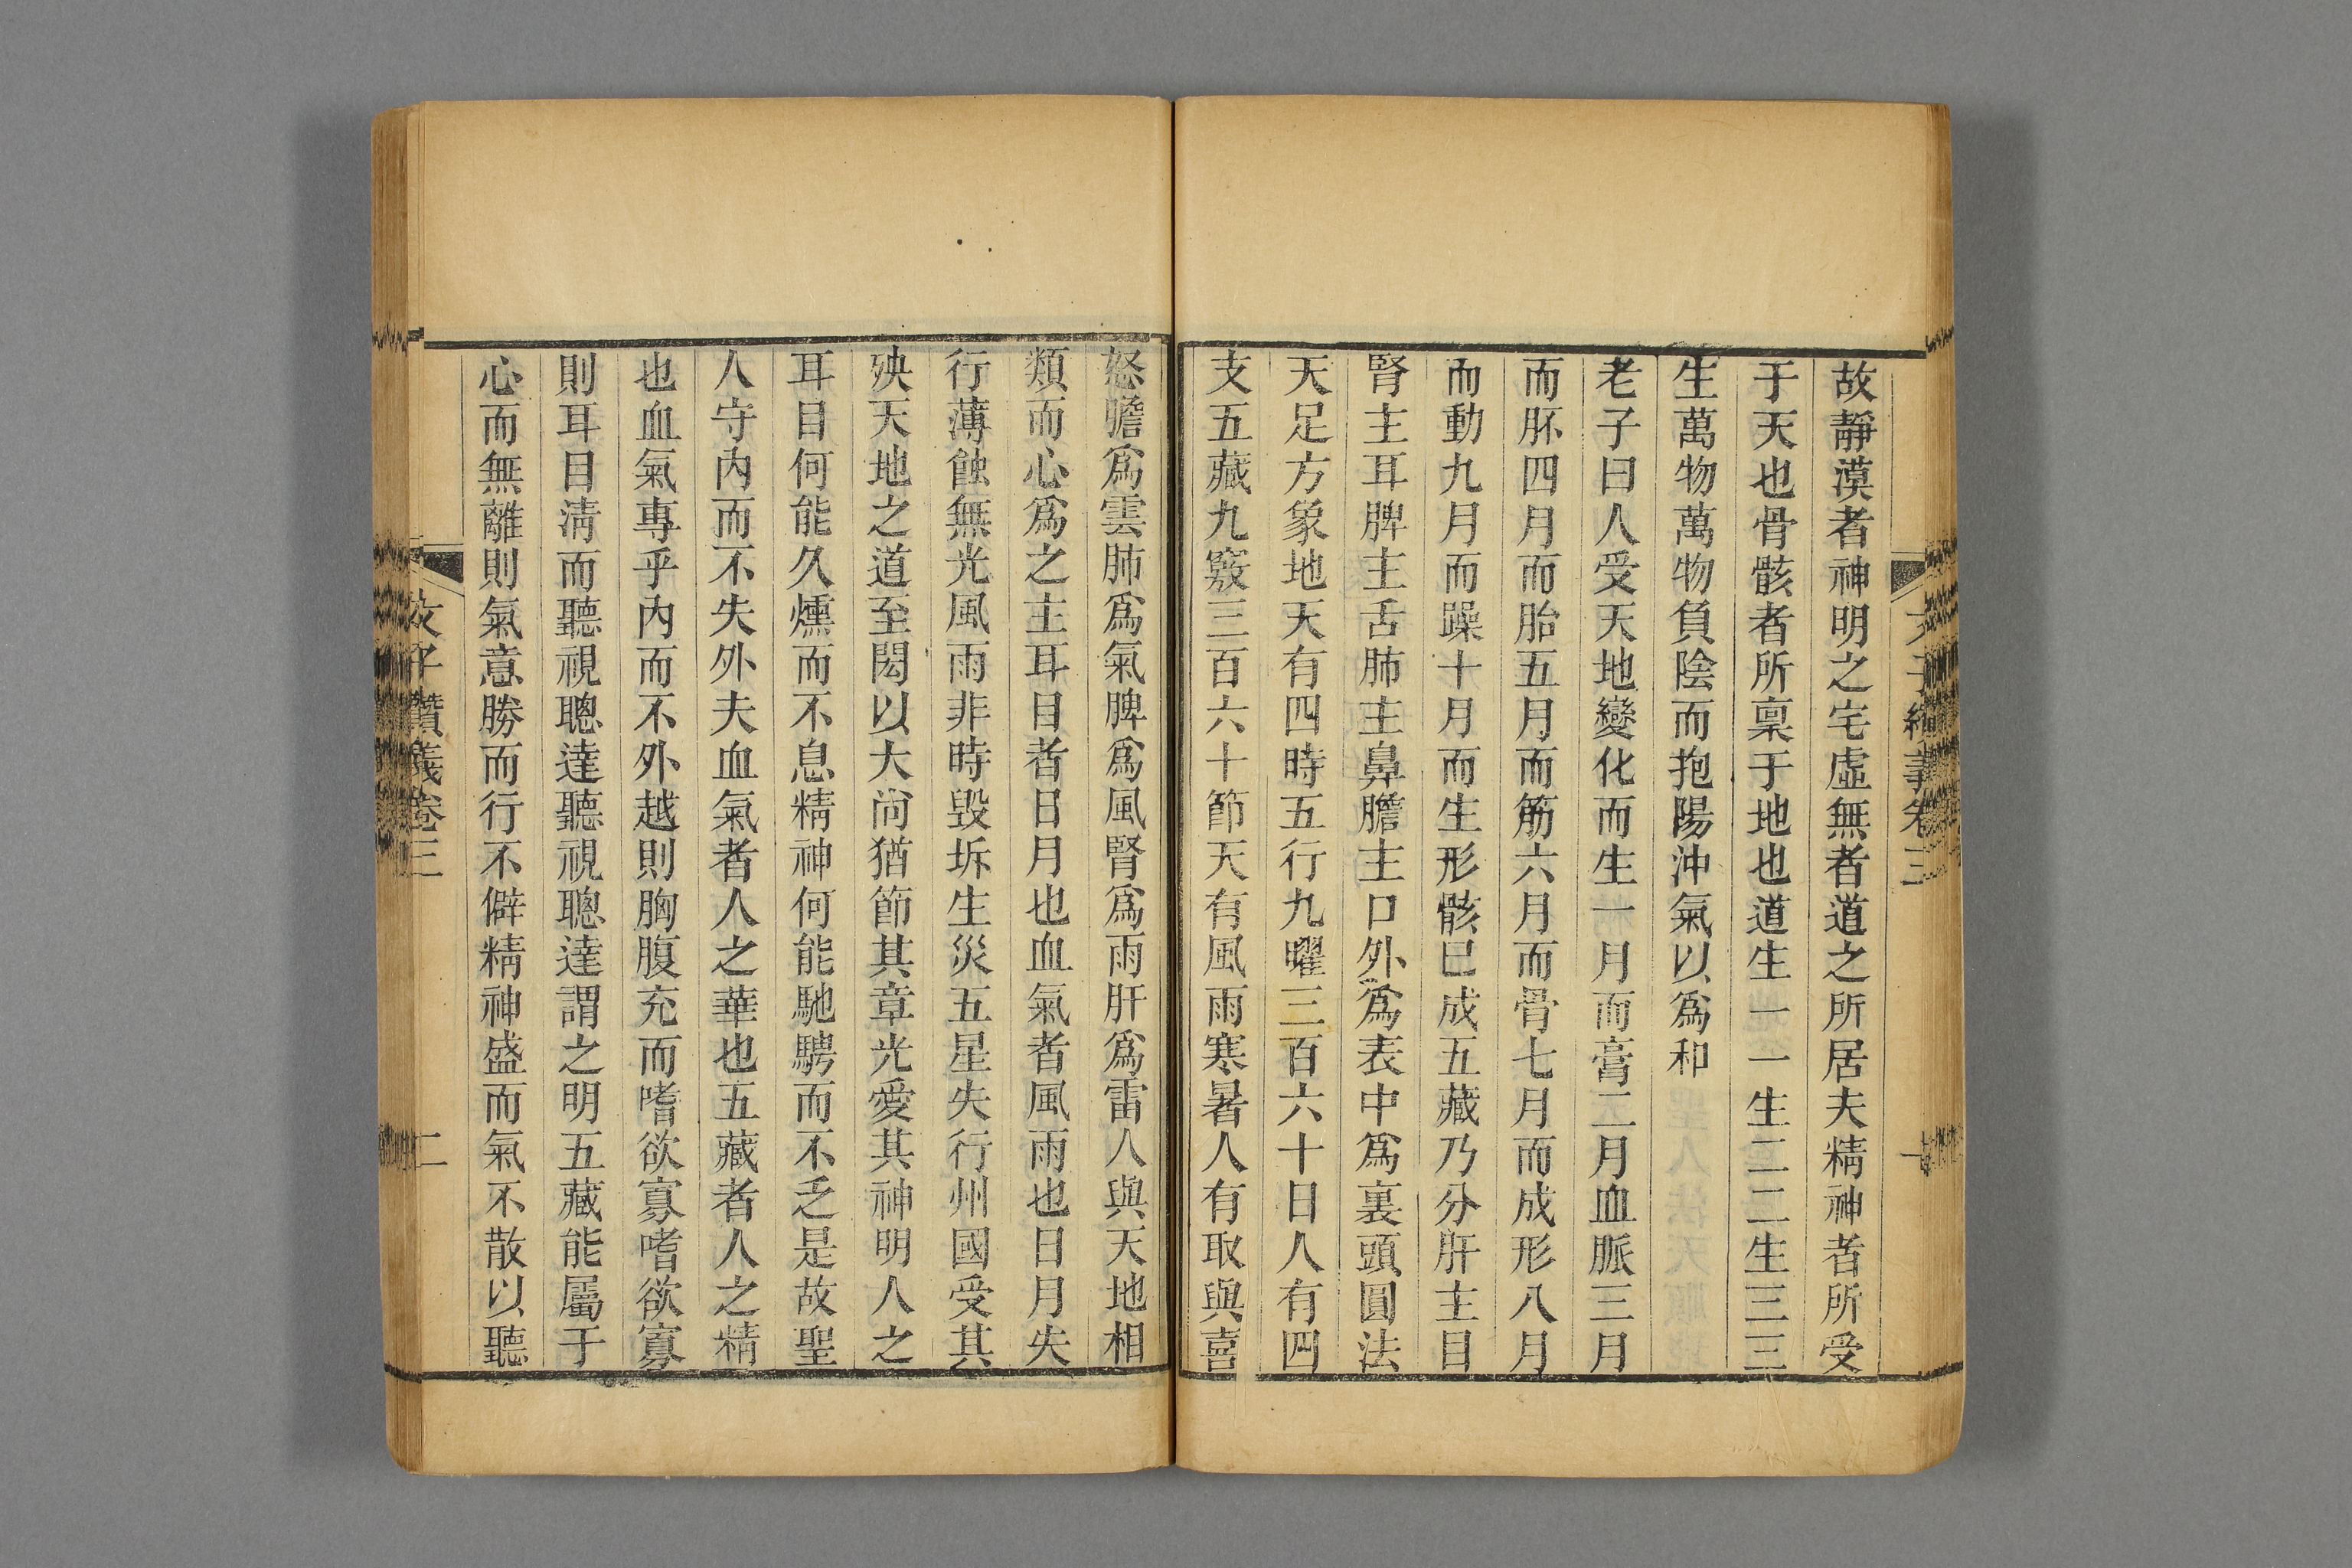 故靜漠者神明之宅虛無者道之所居夫精神者所受
于天也骨骸者所稟于地也道生一一生二二生三三
生萬物萬物負陰而抱陽沖氣以爲和
老子曰人受天地變化而生一月而膏二月血脈三月
而胚四月而胎五月而筋六月而骨七月而成形八月
而動九月而躁十月而生形骸已成五藏乃分肝主目
腎主耳脾主舌肺主鼻膽主口外爲表中爲裏頭圓法
天足方象地天有四時五行九曜三百六十日人有四
支五藏九竅三百六十節天有風雨寒暑人有取與喜
怒膽爲雲肺爲氣脾爲風腎爲雨肝爲雷人與天地相
類而心爲之主耳目者日月也血氣者風雨也日月失
行薄蝕無光風雨非時毀坼生災五星失行州國受其
殃天地之道至閎以大尚猶節其章光愛其神明人之
耳目何能久燻而不息精神何能馳騁而不乏是故聖
人守內而不失外夫血氣者人之華也五藏者人之精
也血氣專乎內而不外越則胸腹充而嗜欲寡嗜欲寡
則耳目淸而聽視聰達聽視聰達謂之明五藏能屬于
心而無離則氣意勝而行不僻精神盛而氣不散以聽
文子纘義卷三
二